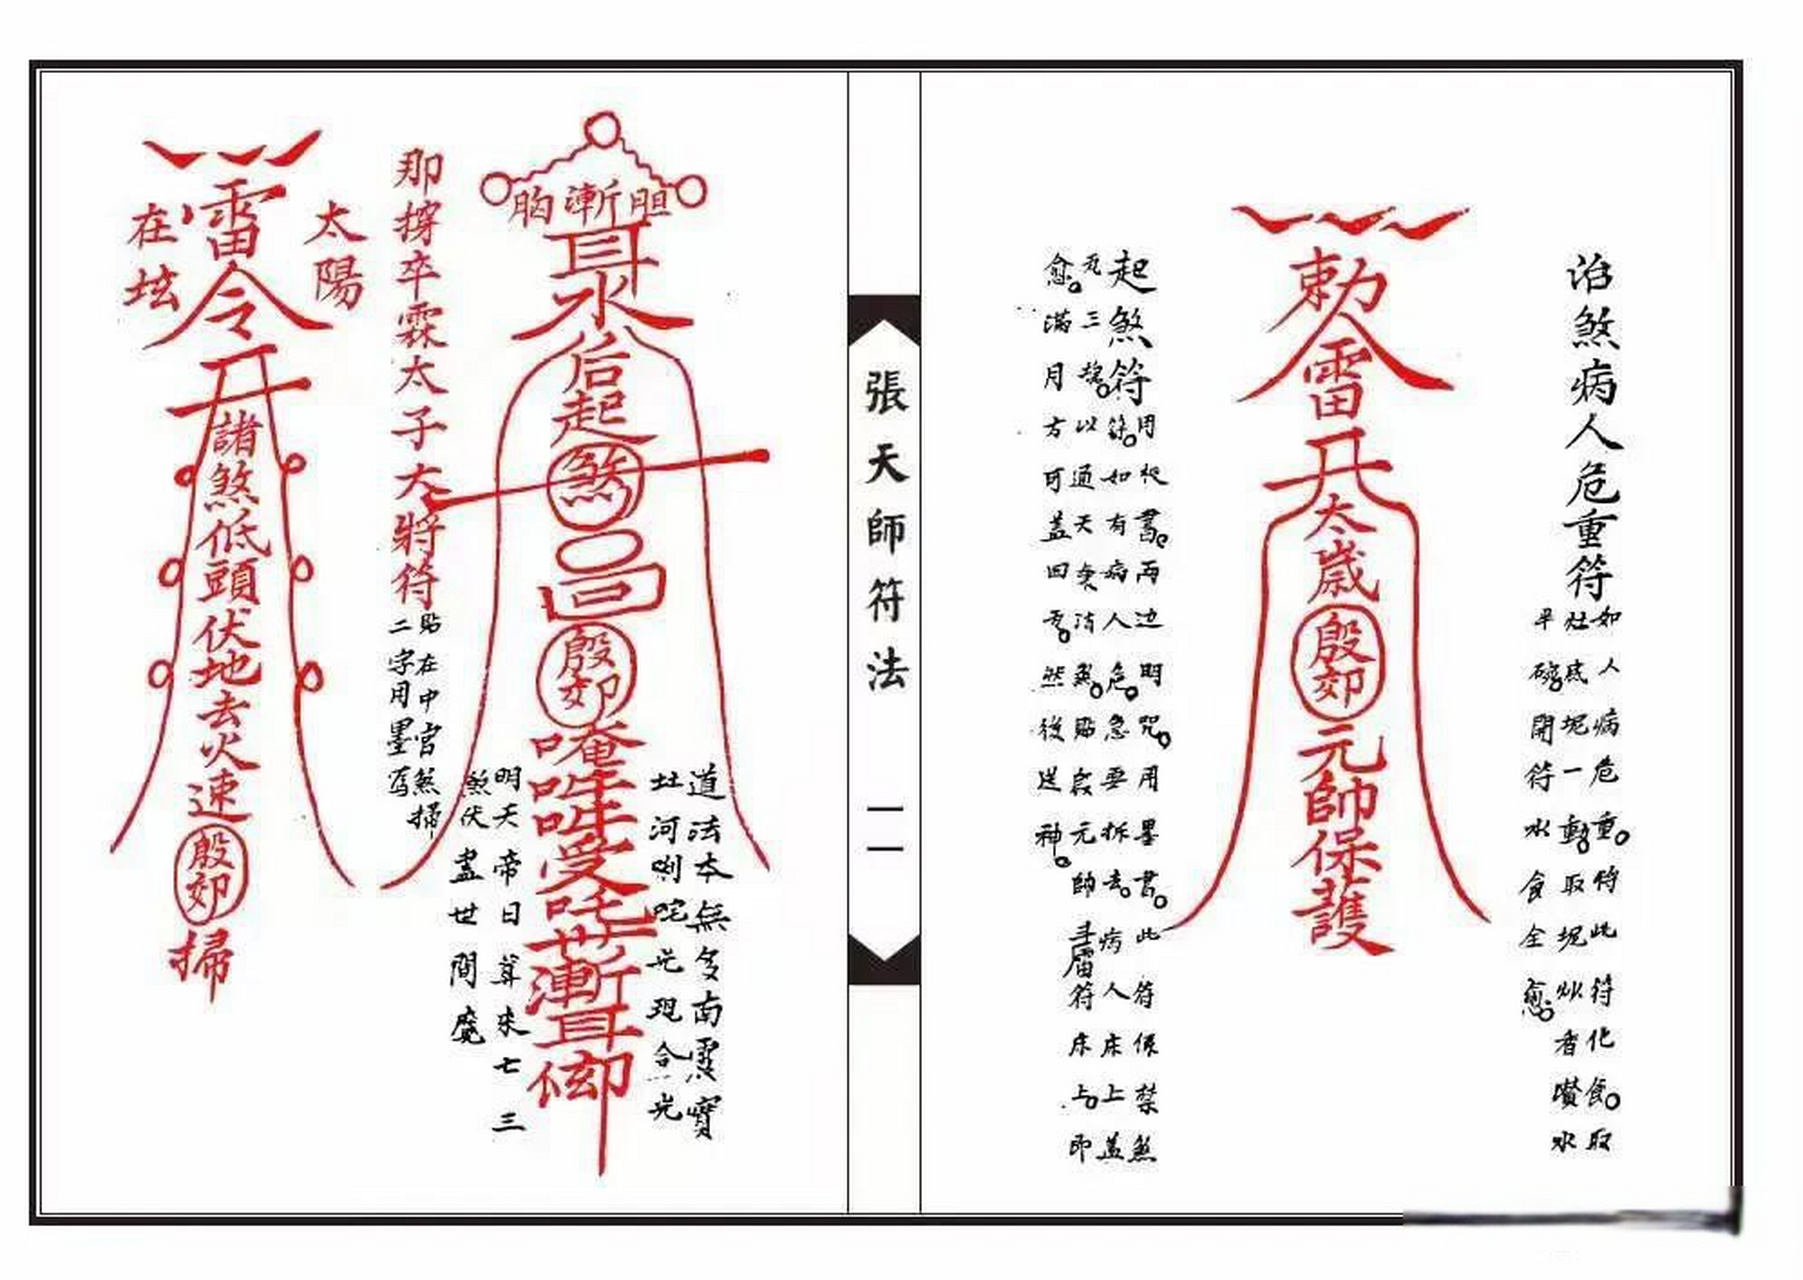 治煞病人危重符
如人病危重特此符化食取
灶底坭一動取坭火香噴水
半碗開符水食全愈
勅令雷
太歲
殷郊
元帥保護
起煞符
用硃書兩边明咒用墨書此符保禁煞
符如有病人危急要拆去病人床上盖
以通天消煞貼殷元帥符床上即
愈滿月方可盖回然後送神
張天師符法
一一
胸漸胆
耳水
后起
煞
殷郊
唵
受吒
漸耳
道法本無多南靈寶
河喇咜光現合光
明天帝日算来七三
煞伏盡世間魔
那撐卒霖太子大將符
貼在中宮煞掃
二字用墨写
太陽
雷令
在垓
諸煞低頭伏地去火速
殷郊
掃